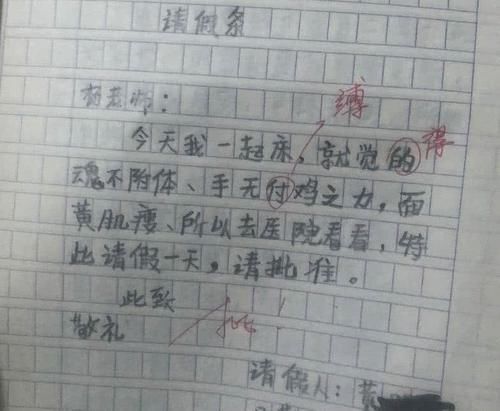 请假条
杨老师：
缚
今天我一起床，就觉的 得
魂不附体、手无付鸡之力，面
黄肌瘦、所以去医院看看，特
此请假一天，请批准。
此致
敬礼 批
请假人：黄